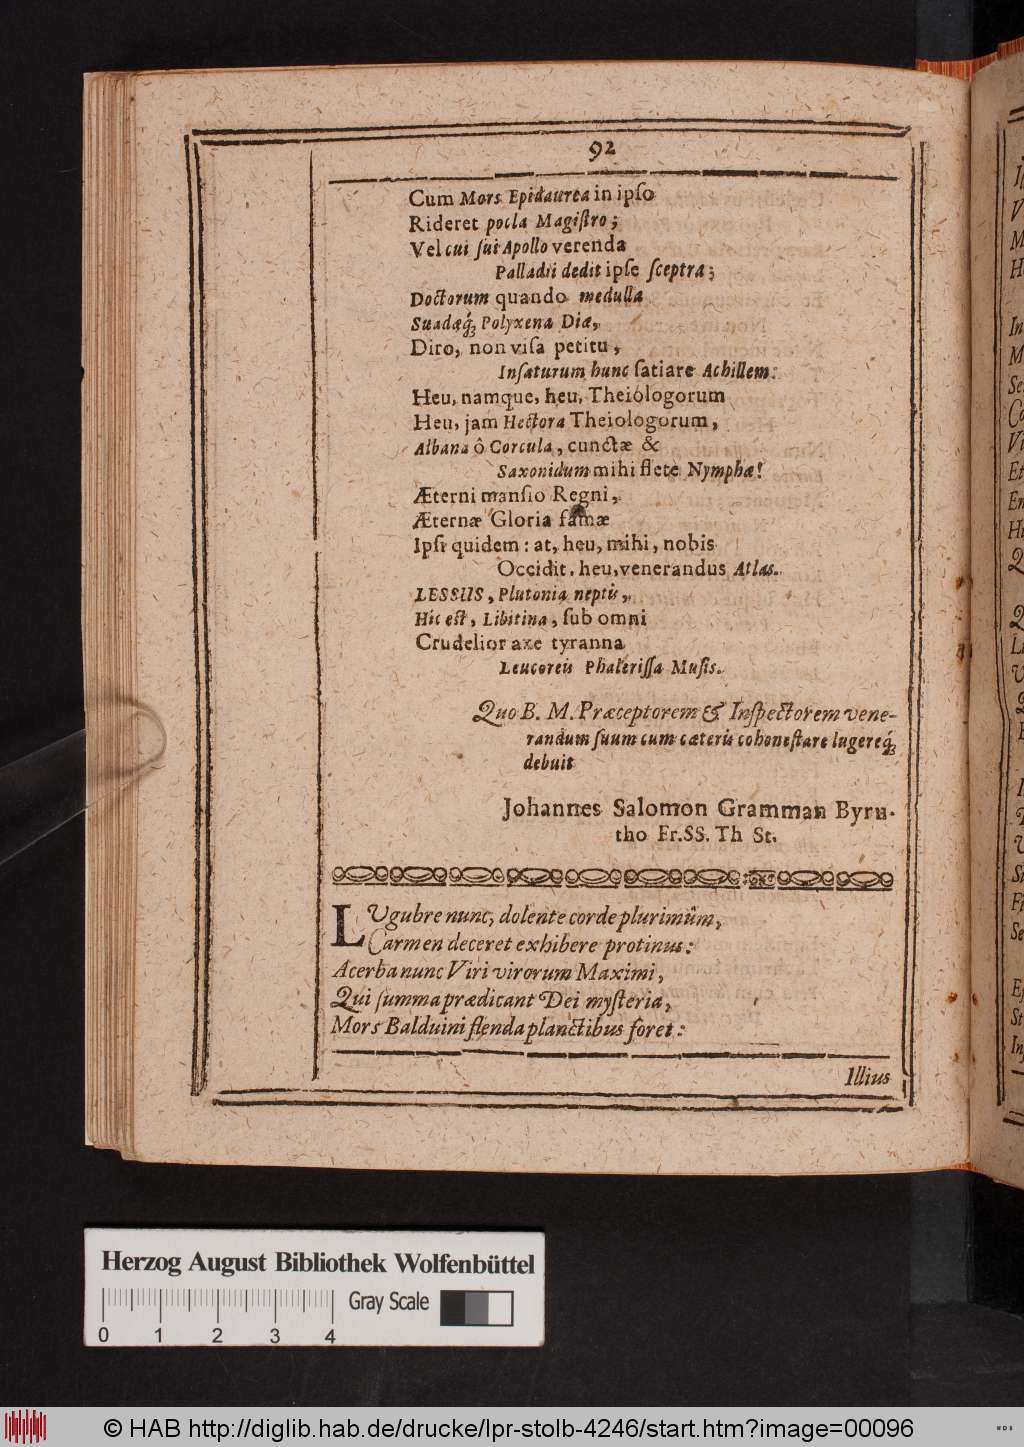 92
Cum Mors Epidaurea in ipſo
Rideret pocla Magiſtro;
Vel cui ſui Apollo verenda
Palladii dedit ipſe ſceptra;
Doctorum quando medulla
Suadæq́; Polyxena Diæ,
Diro, non viſa petitu,
Inſaturum hunc ſatiare Achillem:
Heu, namque, heu, Theiologorum
Heu, jam Hectora Theiologorum,
Albana ô Corcula, cunctæ &
Saxonidum mihi flete Nymphæ!
Æterni manſio Regni,
Æternæ Gloria famæ
Ipſi quidem: at, heu, mihi, nobis
Occidit, heu, venerandus Atlas.
LESSUS, Plutonia neptis,
Hic eſt, Libitina, ſub omni
Crudelior axe tyranna
Leucoreis Phaleriſſa Muſis.
Quo B. M. Præceptorem & Inſpectorem vene-
randum ſuum cum cæteris cohoneſtare lugereq́;
debuit
Johannes Salomon Gramman Byru-
tho Fr. SS. Th St.
LUgubre nunc, dolente corde plurimûm,
Carmen deceret exhibere protinus:
Acerba nunc Viri virorum Maximi,
Qui ſumma prædicant Dei myſteria,
Mors Balduini flenda planctibus foret:
Illius
Herzog August Bibliothek Wolfenbüttel
Gray Scale
0 1 2 3 4
© HAB http://diglib.hab.de/drucke/lpr-stolb-4246/start.htm?image=00096